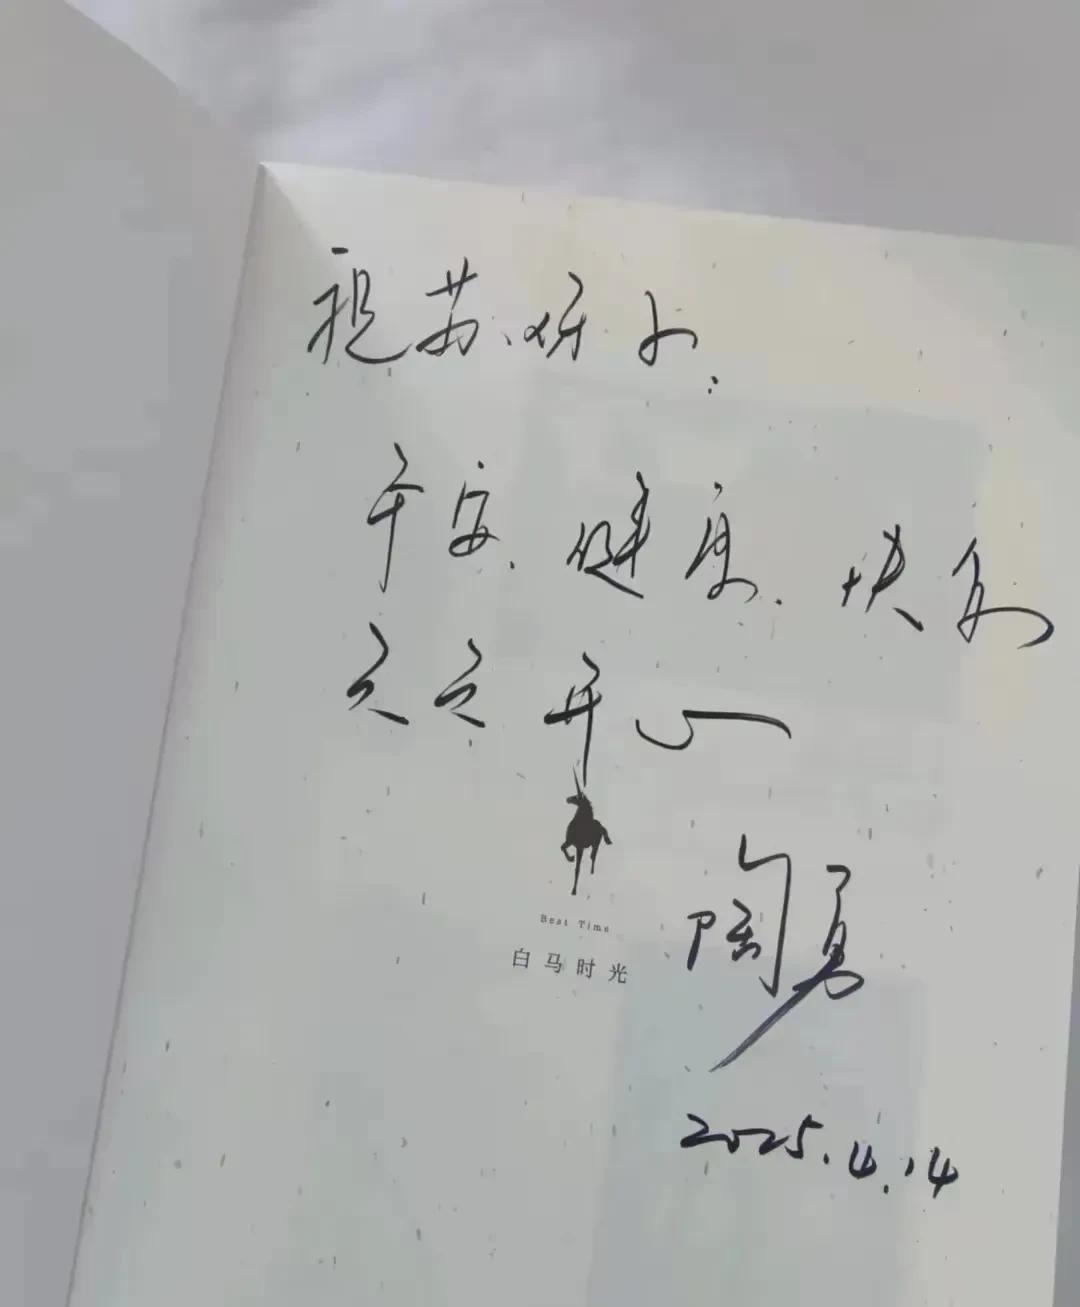 祝苏妍小:
平安、健康、快乐
天天开心
Best Time
白马时光
陶勇
2025.4.14